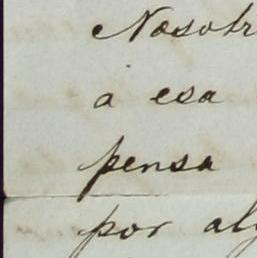 Nosotr
a esa
pensa
por alg